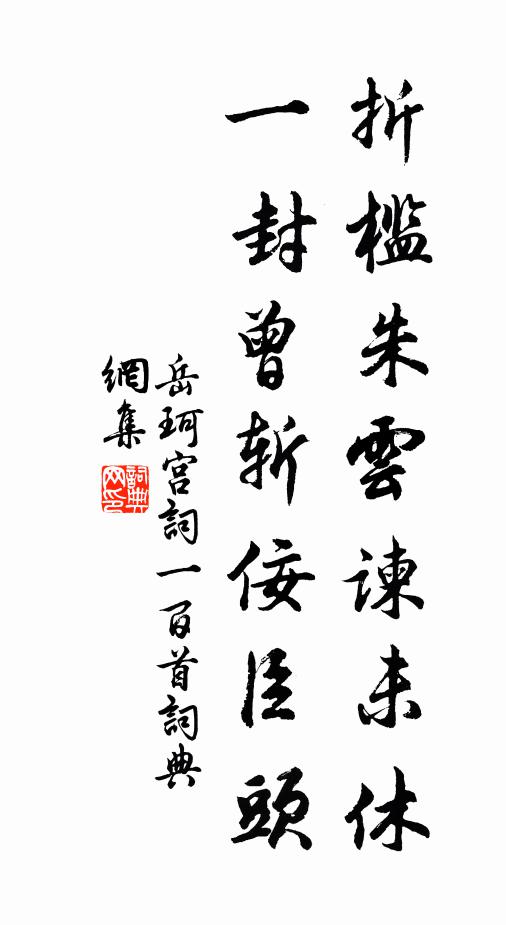 折檻朱雲諫未休
一封曾斬佞臣頭
岳珂宮詞一百首詞典
網集
詞典
网印